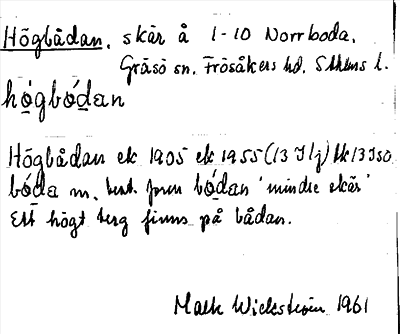 Högbådan, skär å 1-10 Norrboda,
Gräsö sn. Frösåkers hd. Sthlms l.
hǫ́gbǫ́dan
Högbådan ek 1905 ek 1955 (13 I lj) bk 13 I so
bóda m, best. form bǫ́dan 'mindre skär'
Ett högt berg finns på bådan.
Wickström 1961